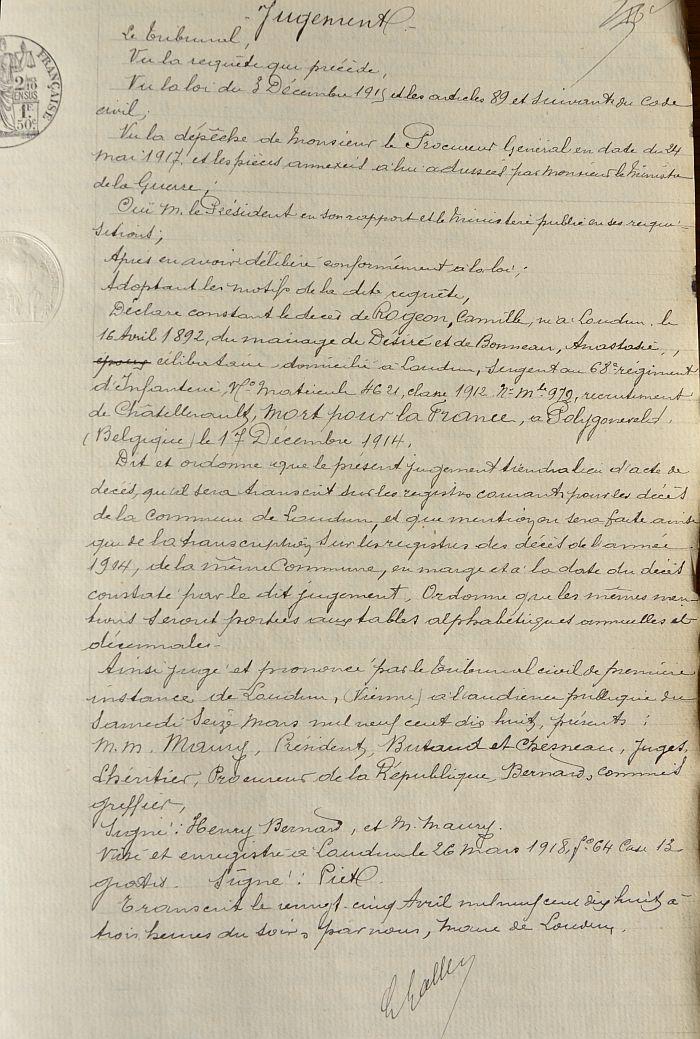 Jugement.
Le Tribunal,
Vu la requête qui précède,
Vu la loi du 3 Décembre 1915 et les articles 89 et suivants du Code
civil;
Vu la dépêche de Monsieur le Procureur Général en date du 24
Mai 1917 et les pièces annexées à lui adressées par Monsieur le Ministre
de la Guerre;
Ouï M. le Président en son rapport et le Ministère public en ses requi-
sitions;
Après en avoir délibéré conformément à la loi;
Adoptant les motifs de la dite requête,
Déclare constant le décès de Rogeon, Camille, né à Loudun le
16 Avril 1892, du mariage de Désiré et de Bonneau, Anastasie,
époux célibataire domicilié à Loudun, Sergent au 68e régiment
d'Infanterie, No Matricule 4621, classe 1912. No Mle 972, recrutement
de Châtellerault, Mort pour la France, à Polygoneveld
(Belgique) le 17 Décembre 1914.
Dit et ordonne que le présent jugement tiendra lieu d'acte de
décès, qu'il sera transcrit sur les registres courants pour les décès
de la Commune de Loudun, et que mention en sera faite ainsi
que de la transcription, sur les registres des décès de l'année
1914, de la même Commune, en marge et à la date du décès
constaté par le dit jugement. Ordonne que les mêmes men-
tions seront portées aux tables alphabétiques annuelles et
décennales.
Ainsi jugé et prononcé par le Tribunal civil de première
instance de Loudun, (Vienne) à l'audience publique du
Samedi Seize Mars mil neuf cent dix huit, présents :
M.M. Maury, Président, Butaud et Chesneau, Juges,
Lhéritier, Procureur de la République, Bernard, commis
greffier,
Signé : Henry Bernard, et M. Maury.
Visé et enregistré à Loudun le 26 Mars 1918, fo 64 Case 13
gratis. Signé : Piet.
Transcrit le vingt-cinq Avril mil neuf cent dix huit à
trois heures du soir, par nous, Maire de Loudun.
FRANÇAISE
2/10
EN SUS
1F.
50c